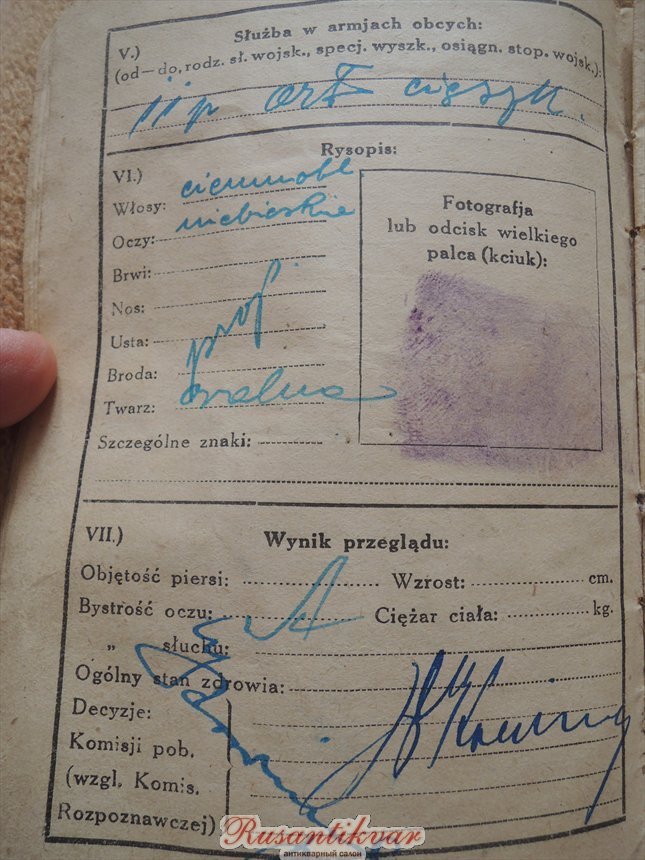 V.) Służba w armjach obcych:
(od—do, rodz. sł. wojsk., specj. wyszk., osiągn. stop. wojsk.):
art
Rysopis:
VI.)
Włosy: ciemnobl
Oczy: niebieskie
Brwi:
Nos:
Usta:
Broda:
Twarz: owalna
Szczególne znaki:
Fotografja
lub odcisk wielkiego
palca (kciuk):
VII.) Wynik przeglądu:
Objętość piersi: Wzrost: cm.
Bystrość oczu: A Ciężar ciała: kg.
„ słuchu:
Ogólny stan zdrowia:
Decyzje:
Komisji pob.
(wzgl. Komis.
Rozpoznawczej)
Rusantikvar
антикварный салон